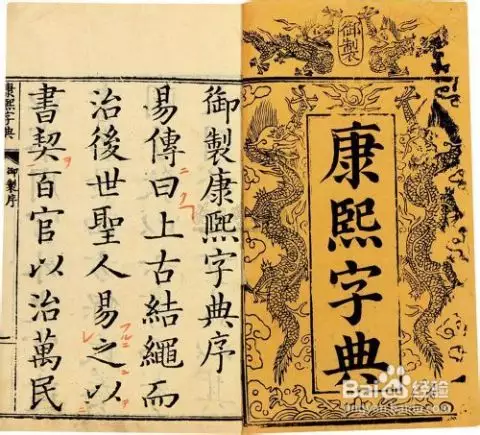 御製
康熙字典
御製康熙字典序
易傳曰上古結繩而
治後世聖人易之以
書契百官以治萬民
康熙字典
御製序
一
Baidu经验